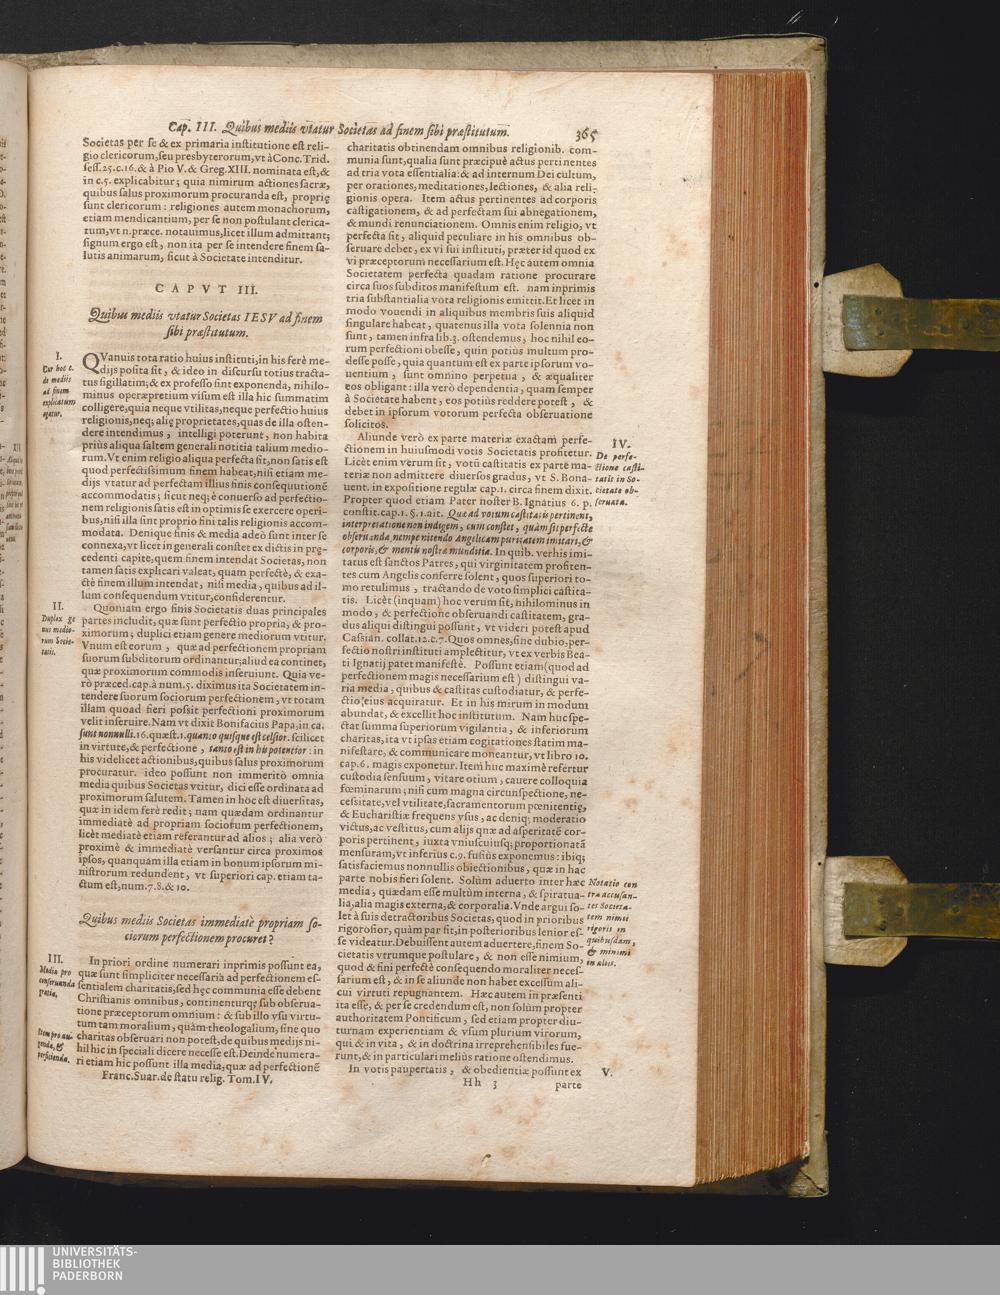 Cap. III. Quibus mediis vtatur Societas ad finem sibi præstitutum.
365
Societas per se & ex primaria institutione est reli-
gio clericorum, seu presbyterorum, vt à Conc. Trid.
sess. 25. c. 16. & à Pio V. & Greg. XIII. nominata est, &
in c. 5. explicabitur; quia nimirum actiones sacræ,
quibus salus proximorum procuranda est, proprię
sunt clericorum: religiones autem monachorum,
etiam mendicantium, per se non postulant clerica-
tum, vt n. præce. notauimus, licet illum admittant;
signum ergo est, non ita per se intendere finem sa-
lutis animarum, sicut à Societate intenditur.
CAPVT III.
Quibus mediis vtatur Societas IESV ad finem
sibi præstitutum.
I.
Cur hoc c.
de mediis
ad finem
explicatum
agatur.
QVanuis tota ratio huius instituti, in his ferè me-
dijs posita sit, & ideo in discursu totius tracta-
tus sigillatim; & ex professo sint exponenda, nihilo-
minus operæpretium visum est illa hic summatim
colligere, quia neque vtilitas, neque perfectio huius
religionis, neq; alię proprietates, quas de illa osten-
dere intendimus, intelligi poterunt, non habita
priùs aliqua saltem generali notitia talium medio-
rum. Vt enim religio aliqua perfecta sit, non satis est
quod perfectissimum finem habeat; nisi etiam me-
dijs vtatur ad perfectam illius finis consequutionē
accommodatis; sicut neq; è conuerso ad perfectio-
nem religionis satis est in optimis se exercere operi-
bus, nisi illa sint proprio fini talis religionis accom-
modata. Denique finis & media adeò sunt inter se
connexa, vt licet in generali constet ex dictis in prę-
cedenti capite, quem finem intendat Societas, non
tamen satis explicari valeat, quam perfectè, & exa-
ctè finem illum intendat, nisi media, quibus ad il-
lum consequendum vtitur, considerentur.
II.
Duplex ge
nus medio-
rum Socie-
tatis.
Quoniam ergo finis Societatis duas principales
partes includit, quæ sunt perfectio propria, & pro-
ximorum; duplici etiam genere mediorum vtitur.
Vnum est eorum, quæ ad perfectionem propriam
suorum subditorum ordinantur; aliud ea continet,
quæ proximorum commodis inseruiunt. Quia ve-
rò præced. cap. à num. 5. diximus ita Societatem in-
tendere suorum sociorum perfectionem, vt totam
illam quoad fieri possit perfectioni proximorum
velit inseruire. Nam vt dixit Bonifacius Papa, in ca.
sunt nonnulli. 16. quæst. 1. quanto quisque est celsior. scilicet
in virtute, & perfectione, tanto est in his potentior: in
his videlicet actionibus, quibus salus proximorum
procuratur. ideo possunt non immeritò omnia
media quibus Societas vtitur, dici esse ordinata ad
proximorum salutem. Tamen in hoc est diuersitas,
quæ in idem ferè redit; nam quædam ordinantur
immediatè ad propriam sociorum perfectionem,
licèt mediatè etiam referantur ad alios; alia verò
proximè & immediatè versantur circa proximos
ipsos, quanquàm illa etiam in bonum ipsorum mi-
nistrorum redundent, vt superiori cap. etiam ta-
ctum est, num. 7. 8. & 10.
Quibus mediis Societas immediatè propriam so-
ciorum perfectionem procuret?
III.
Media pro
conseruanda
gratia,
In priori ordine numerari inprimis possunt ea,
quæ sunt simpliciter necessaria ad perfectionem es-
sentialem charitatis, sed hęc communia esse debent
Christianis omnibus, continenturq; sub obserua-
tione præceptorum omnium: & sub illo vsu virtu-
tum tam moralium, quàm theologalium, sine quo
charitas obseruari non potest, de quibus medijs ni-
hil hic in speciali dicere necesse est. Deinde numera-
ri etiam hic possunt illa media, quæ ad perfectionē
Item pro au-
genda, &
perficienda.
Franc. Suar. de statu relig. Tom. IV.
charitatis obtinendam omnibus religionib. com-
munia sunt, qualia sunt præcipuè actus pertinentes
ad tria vota essentialia: & ad internum Dei cultum,
per orationes, meditationes, lectiones, & alia reli-
gionis opera. Item actus pertinentes ad corporis
castigationem, & ad perfectam sui abnegationem,
& mundi renunciationem. Omnis enim religio, vt
perfecta sit, aliquid peculiare in his omnibus ob-
seruare debet, ex vi sui instituti, præter id quod ex
vi præceptorum necessarium est. Hęc autem omnia
Societatem perfecta quadam ratione procurare
circa suos subditos manifestum est. nam inprimis
tria substantialia vota religionis emittit. Et licet in
modo vouendi in aliquibus membris suis aliquid
singulare habeat, quatenus illa vota solennia non
sunt, tamen infra lib. 3. ostendemus, hoc nihil eo-
rum perfectioni obesse, quin potiùs multum pro-
desse posse, quia quantum est ex parte ipsorum vo-
uentium, sunt omnino perpetua, & æqualiter
eos obligant: illa verò dependentia, quam semper
à Societate habent, eos potiùs reddere potest, &
debet in ipsorum votorum perfecta obseruatione
solicitos.
Aliunde verò ex parte materiæ exactam perfe-
ctionem in huiusmodi votis Societatis profitetur.
Licèt enim verum sit, votū castitatis ex parte ma-
teriæ non admittere diuersos gradus, vt S. Bona-
uent. in expositione regulæ cap. 1. circa finem dixit.
Propter quod etiam Pater noster B. Ignatius 6. p.
constit. cap. 1. §. 1. ait. Quæ ad votum castitatis pertinent,
interpretatione non indigent, cum constet, quàm sit perfectè
obseruanda, nempe nitendo Angelicam puritatem imitari, &
corporis, & mentis nostræ munditia. In quib. verbis imi-
tatus est sanctos Patres, qui virginitatem profiten-
tes cum Angelis conferre solent, quos superiori to-
mo retulimus, tractando de voto simplici castita-
tis. Licèt (inquam) hoc verum sit, nihilominus in
modo, & perfectione obseruandi castitatem, gra-
dus aliqui distingui possunt, vt videri potest apud
Cassian. collat. 12. c. 7. Quos omnes, sine dubio, per-
fectio nostri instituti amplectitur, vt ex verbis Bea-
ti Ignatij patet manifestè. Possunt etiam (quod ad
perfectionem magis necessarium est) distingui va-
ria media, quibus & castitas custodiatur, & perfe-
ctio eius acquiratur. Et in his mirum in modum
abundat, & excellit hoc institutum. Nam huc spe-
ctat summa superiorum vigilantia, & inferiorum
charitas, ita vt ipsas etiam cogitationes statim ma-
nifestare, & communicare moneantur, vt libro 10.
cap. 6. magis exponetur. Item huc maximè refertur
custodia sensuum, vitare otium, cauere colloquia
fœminarum; nisi cum magna circunspectione, ne-
cessitate, vel vtilitate, sacramentorum pœnitentię,
& Eucharistiæ frequens vsus, ac deniq; moderatio
victus, ac vestitus, cum alijs quæ ad asperitatē cor-
poris pertinent, iuxta vniuscuiusq; proportionatā
mensuram, vt inferius c. 9. fusiùs exponemus: ibiq;
satisfaciemus nonnullis obiectionibus, quæ in hac
parte nobis fieri solent. Solùm aduerto inter hæc
media, quædam esse multùm interna, & spiritua-
lia, alia magis externa, & corporalia. Vnde argui so-
let à suis detractoribus Societas, quod in prioribus
rigorosior, quàm par sit, in posterioribus lenior es-
se videatur. Debuissent autem aduertere, finem So-
cietatis vtrumque postulare, & non esse nimium,
quod & fini perfectè consequendo moraliter neces-
sarium est, & in se aliunde non habet excessum ali-
cui virtuti repugnantem. Hæc autem in præsenti
ita esse, & per se credendum est, non solùm propter
authoritatem Pontificum, sed etiam propter diu-
turnam experientiam & vsum plurium virorum,
qui & in vita, & in doctrina irreprehensibiles fue-
runt, & in particulari meliùs ratione ostendimus.
In votis paupertatis, & obedientiæ possunt ex
IV.
De perfe-
ctione casti-
tatis in So-
cietate ob-
seruata.
Notatio con
tra accusan-
tes Societa-
tem nimii
rigoris in
quibusdam,
& minimi
in aliis.
V.
Hh 3
parte
UNIVERSITÄTS-
BIBLIOTHEK
PADERBORN